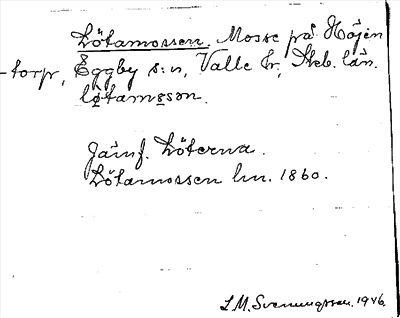 Lötamossen. Mosse på Höjen
-torp, Eggby s:n, Valle hr, Skb. län.
løtamosən.
Jämf. Löterna.
Lötamossen lm. 1860.
L.M. Svenungsson. 1946.